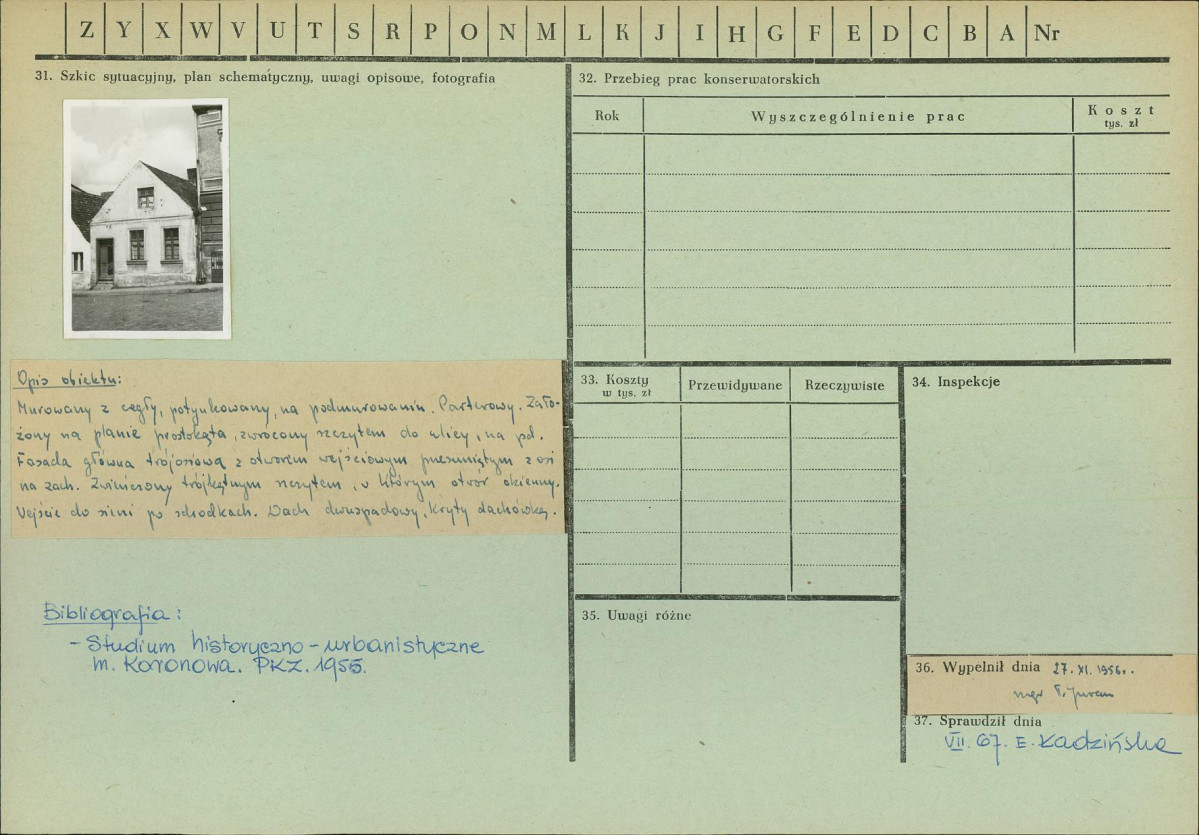 Z Y X W V U T S R P O N M L K J I H G F E D C B A Nr
31. Szkic sytuacyjny, plan schematyczny, uwagi opisowe, fotografia
Opis obiektu:
Murowany z cegły, potynkowany, na podmurowaniu. Parterowy. Zało-
żony na planie prostokąta, zwrócony szczytem do ulicy, na pd.
Fasada główna trójosiowa z otworem wejściowym przesuniętym z osi
na zach. Zwieńczony trójkątnym szczytem, w którym otwór okienny.
Wejście do sieni po schodkach. Dach dwuspadowy, kryty dachówką.
Bibliografia:
- Studium historyczno-urbanistyczne
m. Koronowa. PKZ. 1955.
32. Przebieg prac konserwatorskich
Rok Wyszczególnienie prac Koszt
tys. zł
33. Koszty
w tys. zł
Przewidywane Rzeczywiste
34. Inspekcje
35. Uwagi różne
36. Wypełnił dnia 27.XI.1956r.
mgr
37. Sprawdził dnia
VII. 67. E. Kadzińska